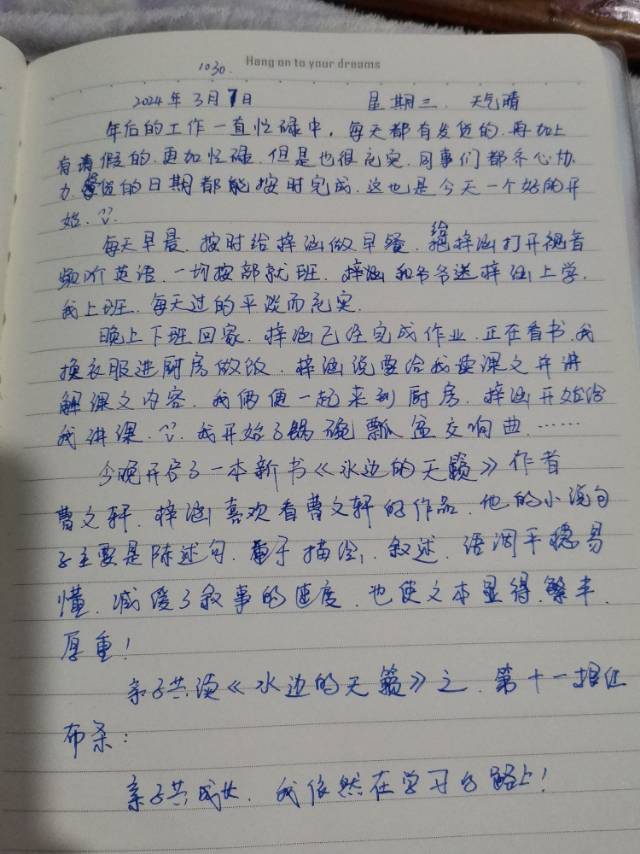 Hang on to your dreams
1030.
2024年3月7日 星期三. 天气晴
年后的工作一直忙碌中, 每天都有发货的. 再加上
有请假的. 更加忙碌. 但是也很充实. 同事们都齐心协
力. 货的日期都能按时完成. 这也是今天一个好的开
始.
每天早晨. 按时给梓涵做早餐. 给梓涵打开视音
频听英语. 一切按部就班. 梓涵和爷爷送梓涵上学.
我上班. 每天过的平淡而充实.
晚上下班回家. 梓涵已经完成作业. 正在看书. 我
换衣服进厨房做饭. 梓涵说要给我读课文并讲
解课文内容. 我俩便一起来到厨房. 梓涵开始给
我讲课. 我开始了锅碗瓢盆交响曲. ……
今晚开启了一本新书《水边的天籁》作者
曹文轩. 梓涵喜欢看曹文轩的作品. 他的小说句
子主要是陈述句. 善于描绘, 叙述. 语调平稳易
懂. 减缓了叙事的速度. 也使文本显得繁丰.
厚重!
亲子共读《水边的天籁》之. 第十一
布条:
亲子共成长. 我依然在学习的路上!